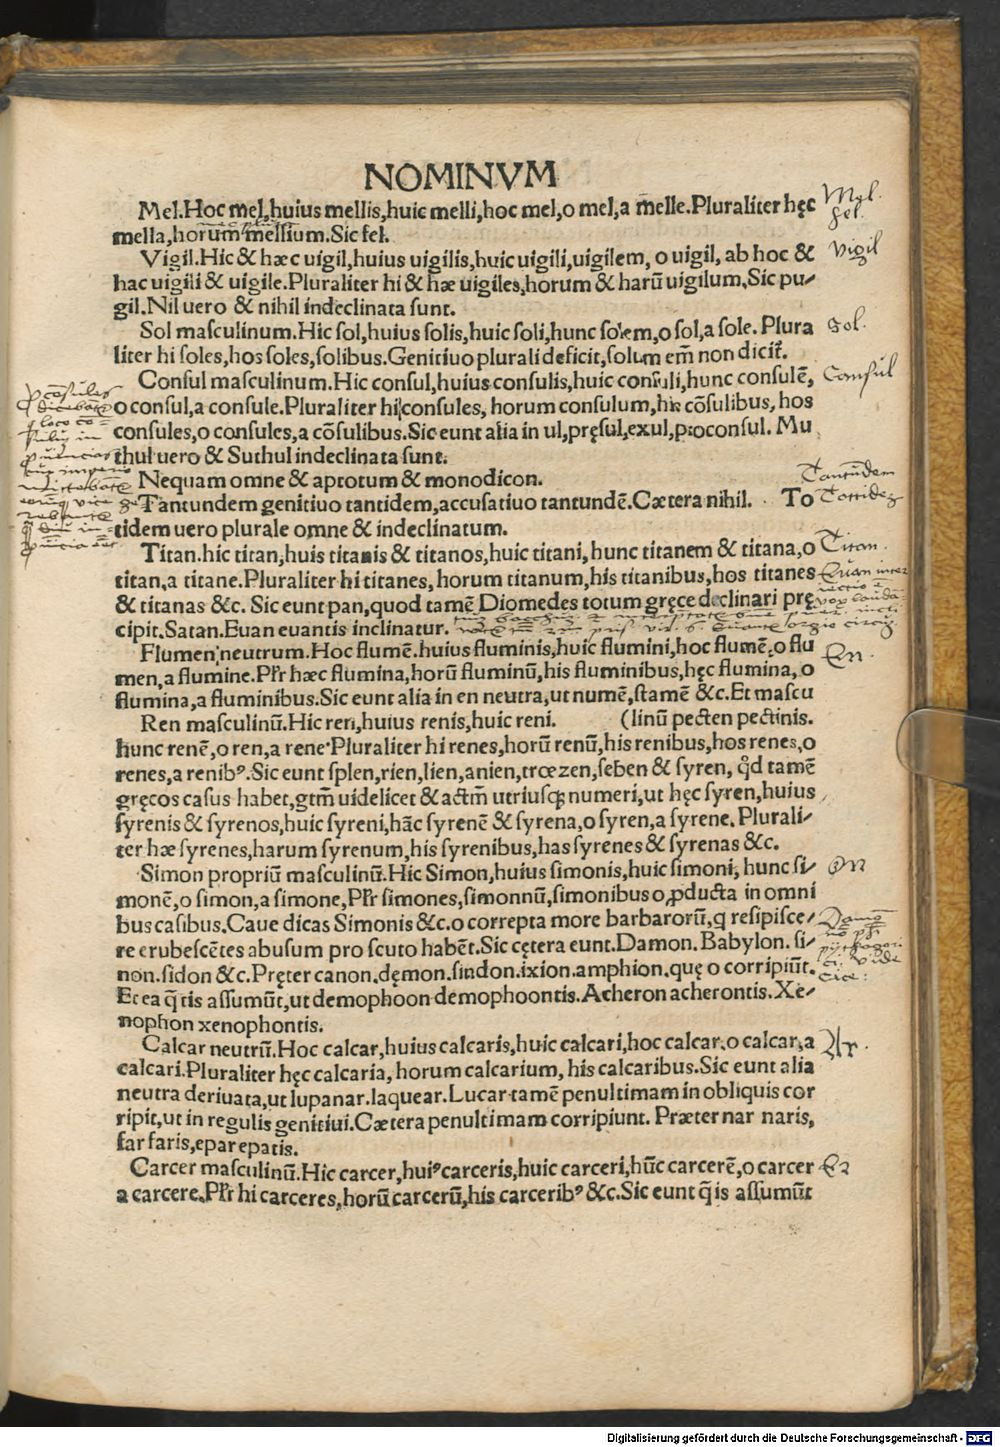 NOMINVM
Mel.Hoc mel,huius mellis,huic melli,hoc mel,o mel,a melle.Pluraliter hęc
mella,horum mellium.Sic fel.
Vigil.Hic & hæc uigil,huius uigilis,huic uigili,uigilem, o uigil, ab hoc &
hac uigili & uigile.Pluraliter hi & hæ uigiles,horum & harũ uigilum.Sic pu/
gil.Nil uero & nihil indeclinata sunt.
Sol masculinum.Hic sol,huius solis,huic soli,hunc solem,o sol,a sole. Plura
liter hi soles,hos soles,solibus.Genitiuo plurali deficit,solum em̃ non dicit̃.
Consul masculinum.Hic consul,huius consulis,huic consuli,hunc consulẽ,
o consul,a consule.Pluraliter hi consules, horum consulum,his cõsulibus, hos
consules,o consules,a cõsulibus.Sic eunt alia in ul,pręsul,exul,proconsul. Mu
thul uero & Suthul indeclinata sunt.
Nequam omne & aptotum & monodicon.
Tantundem genitiuo tantidem,accusatiuo tantundẽ.Cætera nihil. To
tidem uero plurale omne & indeclinatum.
Titan.hic titan,huis titanis & titanos,huic titani, hunc titanem & titana,o
titan,a titane.Pluraliter hi titanes, horum titanum,his titanibus,hos titanes
& titanas &c. Sic eunt pan,quod tamẽ Diomedes totum gręce declinari prę
cipit.Satan.Euan euantis inclinatur.
Flumen neutrum. Hoc flumẽ.huius fluminis,huic flumini,hoc flumẽ,o flu
men,a flumine.Plr̃ hæc flumina,horũ fluminũ,his fluminibus,hęc flumina, o
flumina,a fluminibus.Sic eunt alia in en neutra,ut numẽ,stamẽ &c.Et mascu
Ren masculinũ.Hic ren,huius renis,huic reni. (linũ pecten pectinis.
hunc renẽ,o ren,a rene.Pluraliter hi renes,horũ renũ,his renibus,hos renes,o
renes,a renibꝰ.Sic eunt splen,rien,lien,anien,trœzen,seben & syren, qd̃ tamẽ
gręcos casus habet,gtm̃ uidelicet & actm̃ utriusqꝫ numeri,ut hęc syren,huius
syrenis & syrenos,huic syreni,hãc syrenẽ & syrena,o syren,a syrene. Plurali/
ter hæ syrenes,harum syrenum,his syrenibus,has syrenes & syrenas &c.
Simon propriũ masculinũ.Hic Simon,huius simonis,huic simoni, hunc si/
monẽ,o simon,a simone,Plr̃ simones,simonnũ,simonibus o ꝓducta in omni
bus casibus.Caue dicas Simonis &c.o correpta more barbarorũ,q resipisce/
re erubescẽtes abusum pro scuto habẽt.Sic cętera eunt.Damon. Babylon. si/
non.sidon &c.Pręter canon.dęmon.sindon.ixion.amphion.quę o corripiũt.
Et ea q̃ tis assumũt,ut demophoon demophoontis.Acheron acherontis.Xe/
nophon xenophontis.
Calcar neutrũ.Hoc calcar,huius calcaris,huic calcari,hoc calcar.o calcar,a
calcari.Pluraliter hęc calcaria, horum calcarium, his calcaribus.Sic eunt alia
neutra deriuata,ut lupanar.laquear.Lucar tamẽ penultimam in obliquis cor
ripit,ut in regulis genitiui.Cætera penultimam corripiunt. Præter nar naris,
far faris,epar epatis.
Carcer masculinũ.Hic carcer,huiꝰ carceris,huic carceri,hũc carcerẽ,o carcer
a carcere.Plr̃ hi carceres,horũ carcerũ,his carceribꝰ &c.Sic eunt q̃ is assumũt
Mel.
fel.
Vigil
Sol.
Consul
Tantũdem
Titan.
En.
on
Ar.
Er
Digitalisierung gefördert durch die Deutsche Forschungsgemeinschaft - DFG